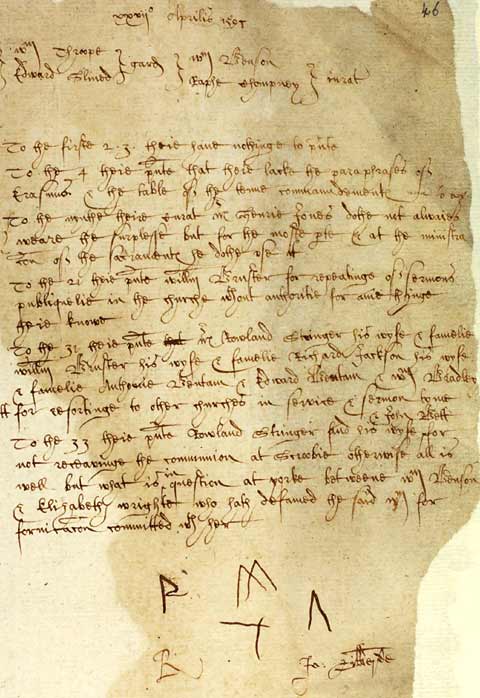 46
xxvii° Aprilis 159
Wm Throope
Edward Slmed
gard
Wm Benson
Raphe Chompney
iurat
To the firste 2. 3. theie have nothinge to pnte
To the 4 theie pnte that theie lacke the paraphrases of
Erasmus & the table of the tenne commanddements
To the nynthe theire Curat Mr Henrie Jones dothe not alwaies
weare the surplesse but for the moste pte & at the ministra
con of the sacraments he dothe use it
To the 21 theie pnte Willm Bruster for repeatinge of sermons
publiquelie in the churche wthout authoritie for anie thinge
theie knowe
To the 31 theie pnte Mr Rowland Stringer his wyfe & familie
Willm Bruster his wyfe & familie Richard Jackson his wyfe
& familie Anthonie Bentam & Edward Bentam & Wm Bradley
for resortinge to other churches in service & sermon tyme
& John Bett
To the 33 theie pnte Rowland Stringer and his wyfe for
not receavinge the communion at Scrobie otherwise all is
well but what is in question at yorke betweene Wm Benson
& Elizabeth wright who hath defamed the said Wm for
fornicacon committed wth her
R
M
Λ
R
Ja: